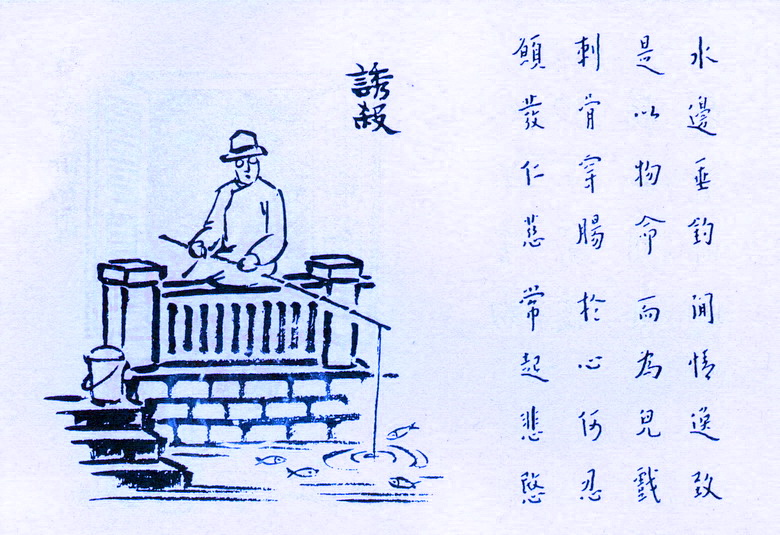 誘殺
水邊垂釣閒情逸致
是以物命而為兒戲
刺骨穿腸於心何忍
願發仁慈常起悲愍